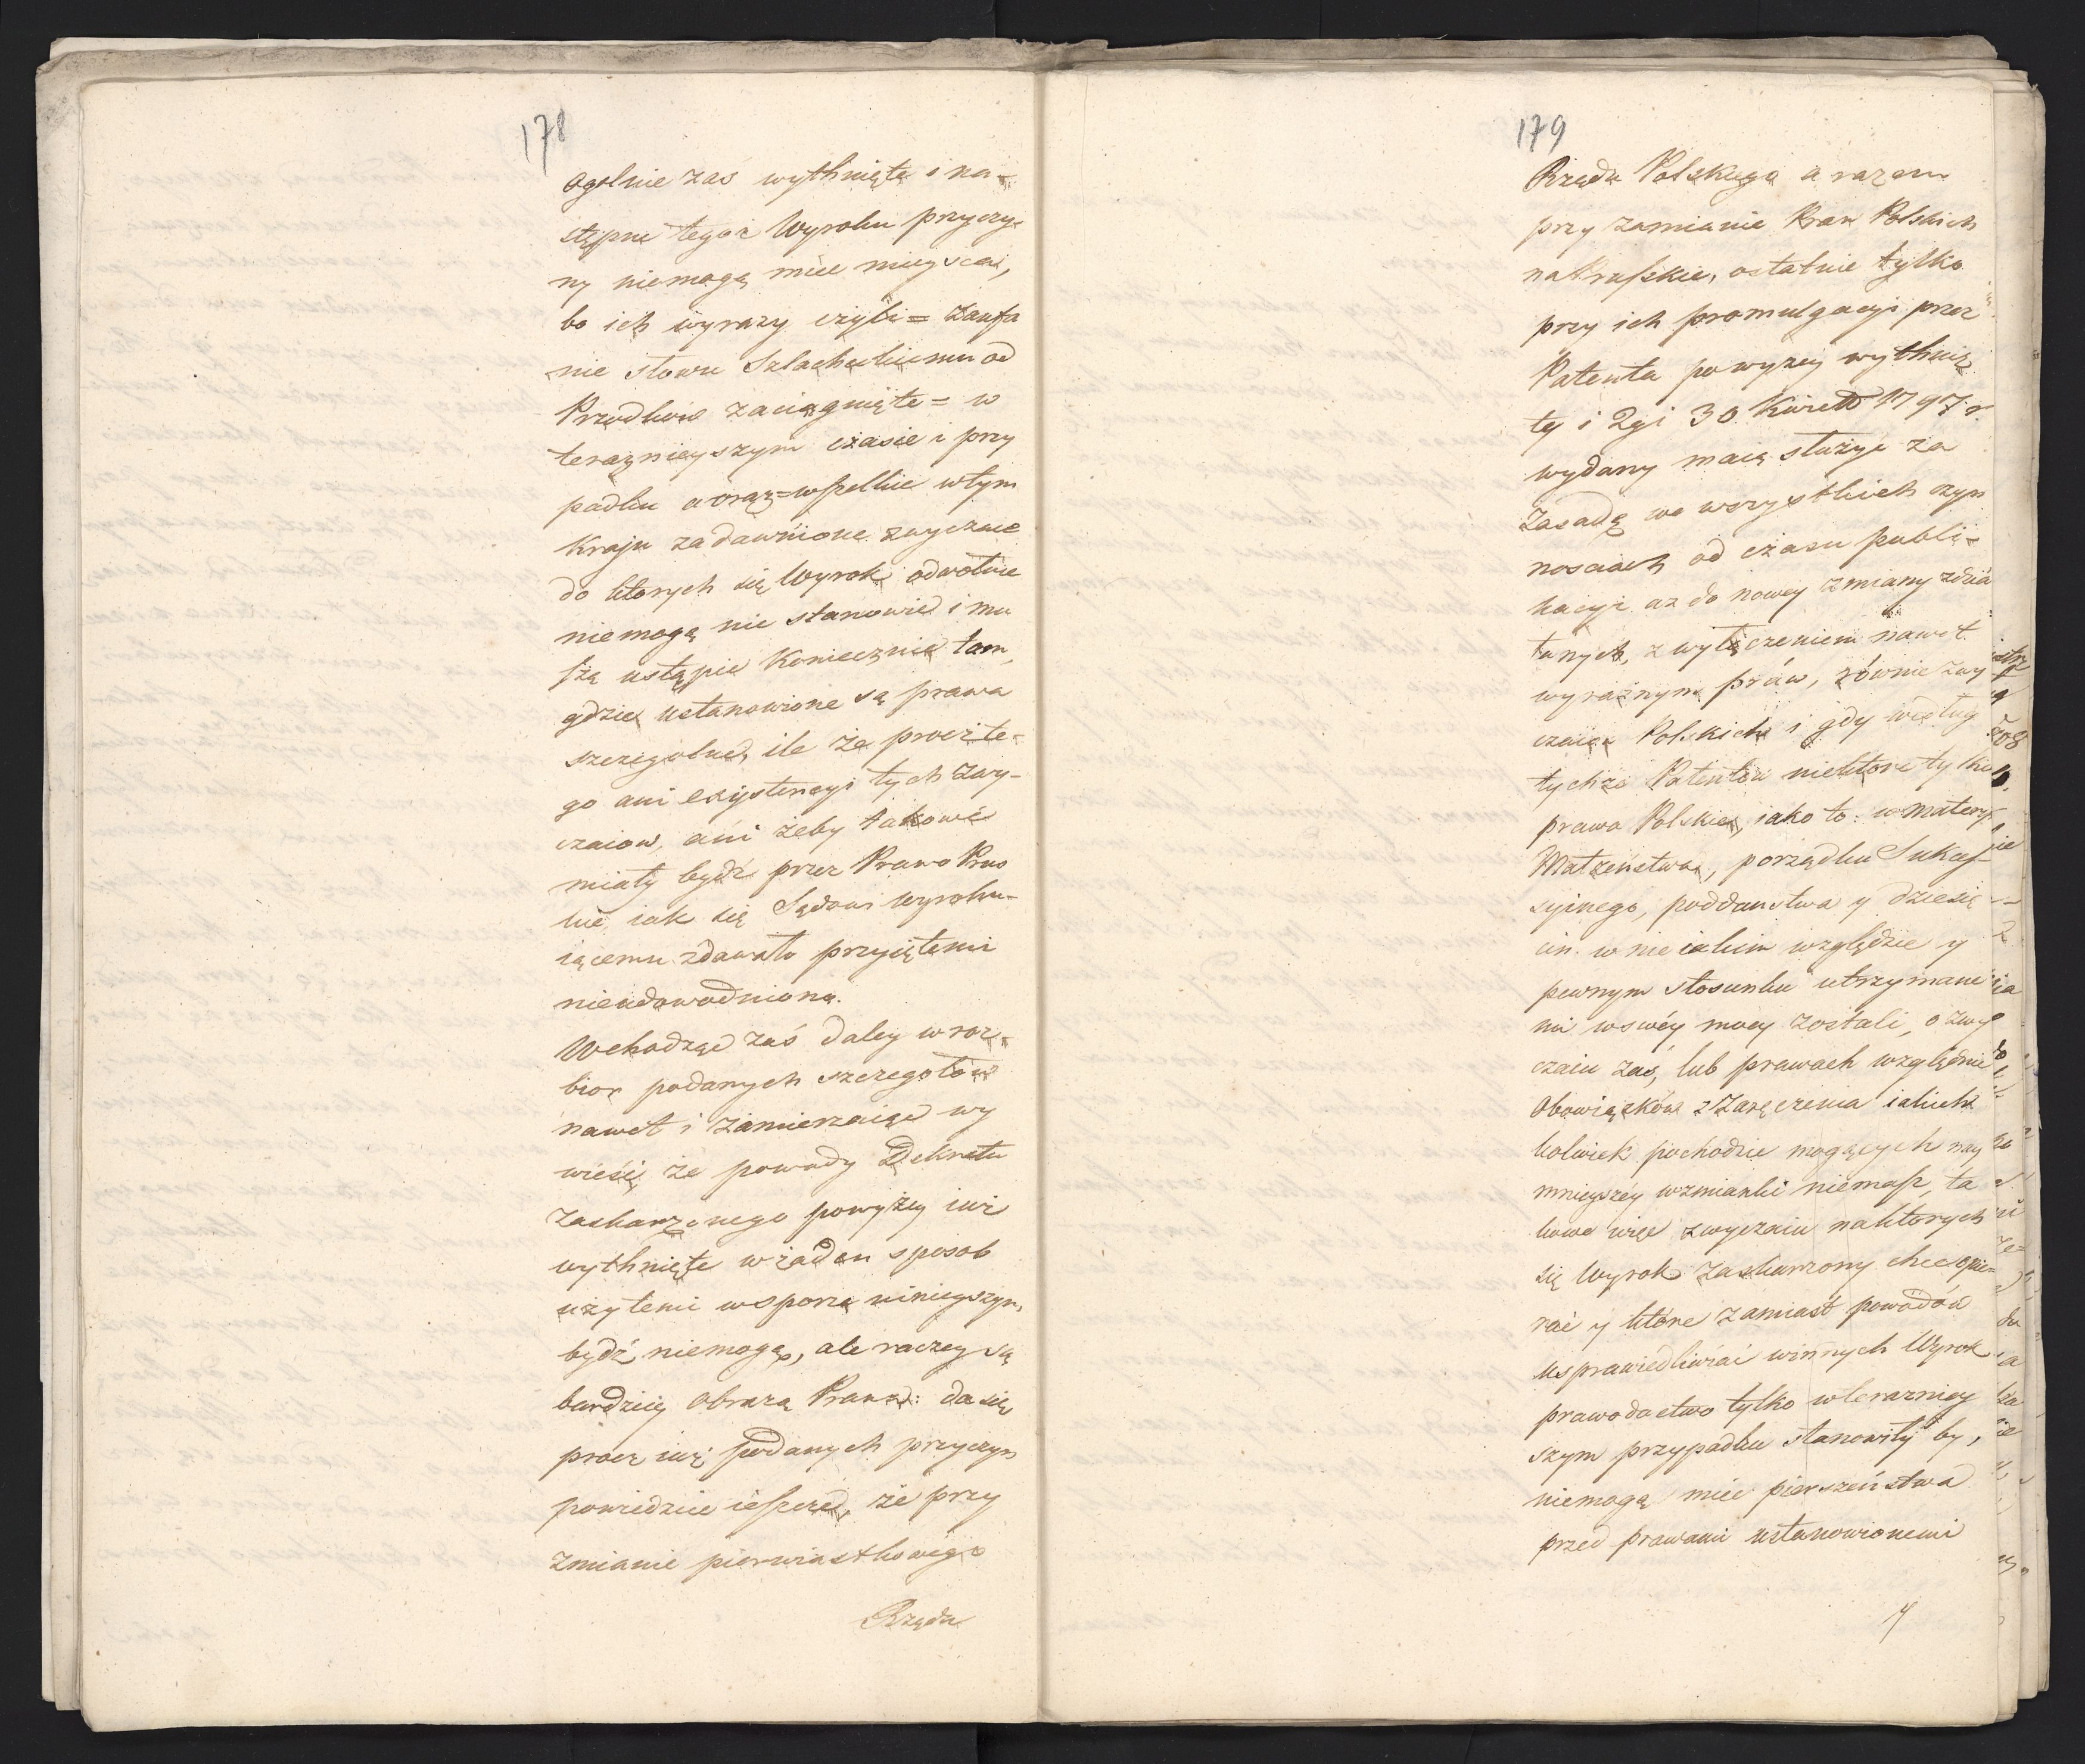 178
ogolnie zas wythnięte i na=
stępne tegoż Wyroku przyczy=
ny niemogą mieć mieysca,
bo ich wyrazy czyli = Zaufa
nie słowu Szlacheckiemu od
Przodkow zaciągnięte = w
teraznieyszym czasie i przy
padku a oraz = wszelkie w tym
Kraju zadawnione zwyczaie
do ktorych się Wyrok odwołuie
niemogą nic stanowić i mu
szą ustąpic Koniecznie tam,
gdzie ustanowione są prawa
szczegolne, ile że procz te=
go ani exystencyi tych zwy=
czaiow, ani żeby takowe
miały bydź przez Prawo Prus
kie, iak się Sądowi wyroku=
iącemu zdawało przyiętemi
nieudowodniono.
Wchodząc zaś daley w roz=
bior podanych szczegołow
nawet i zamierzaiąc wy
wieść, że powody Dekretu
zaskarżonego powyżey iuż
wythnięte w żaden sposob
użytemi w sporze ninieyszym
bydź niemogą, ale raczey są
bardziey obrazą Prawa: da się
procz iuż podanych przyczyn
powiedzieć ieszcze, że przy
zmianie pierwiastkowego
Rządu
179
Rządu Polskiego a razem
przy zamianie Praw Polskich
na Pruskie, ostatnie tylko
przy ich promulgacyi przez
Patenta powyzey wythnię
te i 2gi 30 Kwiet 1797 r
wydany maią służyć za
Zasadę we wszystkich czyn
nosciach od czasu publi=
kacyi az do nowey zmiany zdzia
łanych, z wyłączeniem nawet
wyraznym praw, rownie zwy
czaiow Polskich i gdy według
tychże Patentow niektore tylko
prawa Polskie, iako to: w materyi
Małzeństwa, porządku Sukces=
syinego, poddaństwa y dziesię
cin. w nieiakim względzie y
pewnym stosunku utrzymane
mi w swéy mocy zostali, o zwy
czaiu zaś, lub prawach względnie
Obowiązkow z Zaręczenia iakich
kolwiek pochodzić mogących nay
mnieyszéy wzmianki niemasz, ta
kowe więc zwyczaiu na ktorych
się Wyrok zaskarzony chce opie=
rać y ktore zamiast powodów
usprawiedliwiać winnych Wyrok
prawodactwo tylko w terazniey
szym przypadku stanowiły by,
niemogą mieć pierszeństwa
przed prawami ustanowionemi